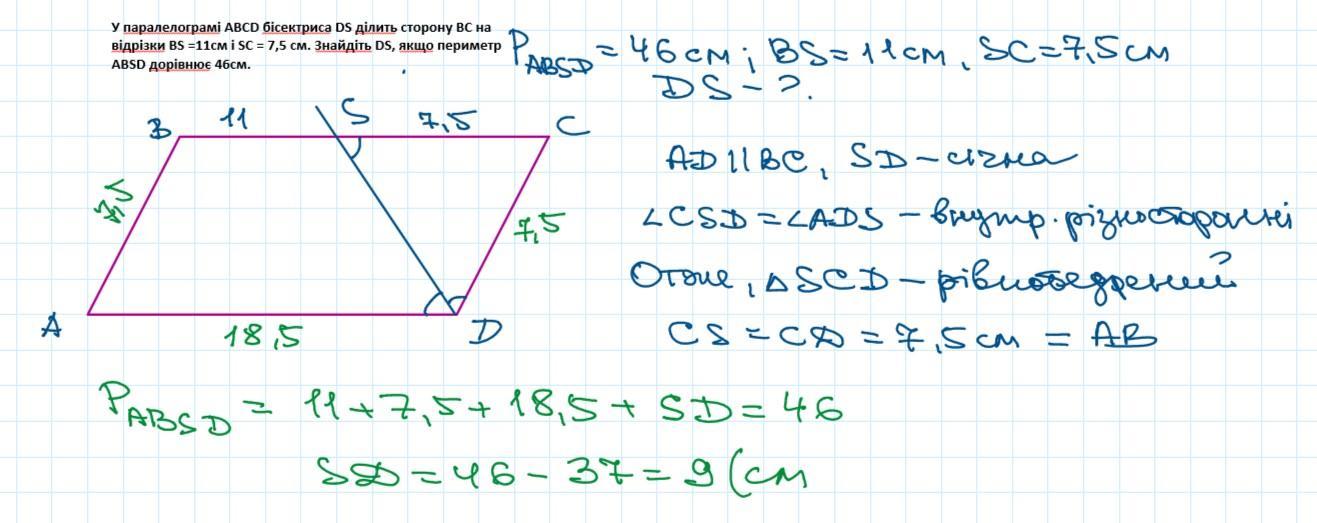 У паралелограмі ABCD бісектриса DS ділить сторону BC на
відрізки BS =11см і SC = 7,5 см. Знайдіть DS, якщо периметр
ABSD дорівнює 46см.
P ABSD = 46 см ; BS = 11 см, SC = 7,5 см
DS – ?.
B 11 S 7,5 C
7,5
7,5
A 18,5 D
AD || BC, SD – січна
∠CSD = ∠ADS – внутр. різносторонні
Отже, △SCD – рівнобедрений
CS = CD = 7,5 см = AB
P ABSD = 11 + 7,5 + 18,5 + SD = 46
SD = 46 – 37 = 9 (см